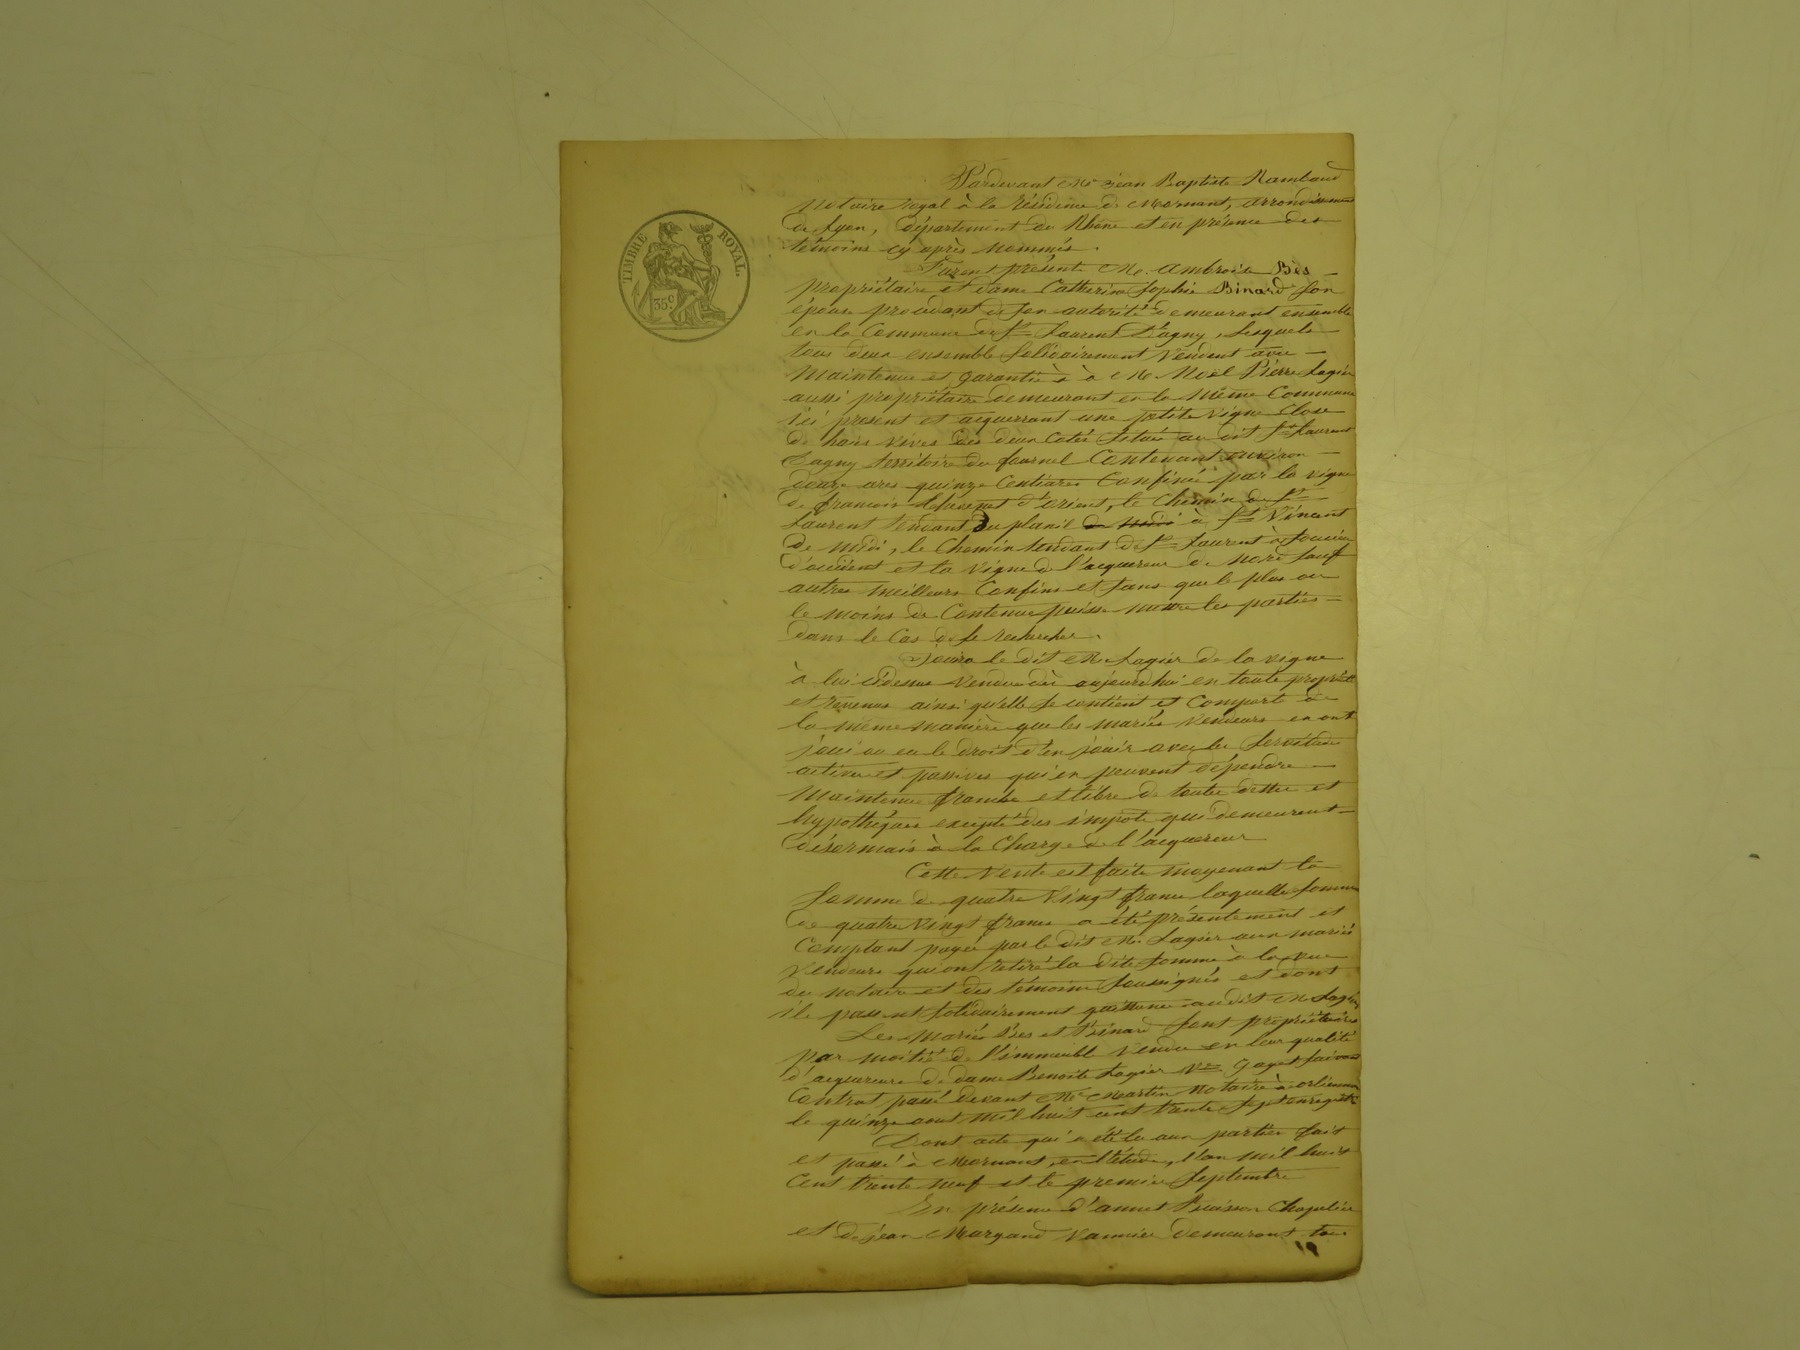 TIMBRE ROYAL.
35c
Pardevant Me jean Baptiste Rambaud
notaire royal à la résidence de Mornant, arrondissement
de Lyon, département du Rhône et en présence des
témoins cy après nommés.
Furent présents M. Ambroise Bès
propriétaire et dame Catherine Sophie Binard son
épouse procédant de son autorité demeurant ensemble
en la Commune de St Laurent d'agny, Lesquels
tous deux ensemble solidairement vendent avec
maintenue et garanties à Me Noël Pierre Lagier
aussi propriétaire demeurant en la même Commune
ici present et acquerrant une petite vigne Close
de haies vives des deux cotés située au dit St Laurent
Dagny territoire du fournel Contenant environ
douze ares quinze Centiares Confinée par la vigne
de francois d'orient, le Chemin de St
Laurent tendant du planil de midi à St Vincent
de midi, le Chemin tendant de St Laurent à Soucieu
d'occident et la vigne de l'acquereur de nord sauf
autres meilleurs Confins et sans que le plus ou
le moins de Contenue puisse mettre les parties
dans le Cas de se rechercher.
Jouira le dit Me Lagier de la vigne
à lui cidessus vendue dès aujourdhui en toute propriété
et revenus ainsi qu'elle se contient et Comporte de
la même manière que les mariés vendeurs en ont
joui ou eu le droit d'en jouir avec les servitudes
actives et passives qui en peuvent dépendre
maintenue franche et libre de toutes dettes et
hypothèques excepté des impots qui demeurent
désormais à la Charge de l'acquereur
Cette vente est faite moyenant la
somme de quatre vingt francs laquelle somme
de quatre vingt francs a été présentement et
Comptant payée par le dit Me. Lagier aux mariés
vendeurs qui ont retiré la dite somme à la vue
du notaire et des témoins soussignés et dont
ils passent solidairement quittance audit Me Lagier
Les mariés Bès et Binard sont propriétaires
par moitié de l'immeuble vendu en leur qualité
d'acquereurs de dame Benoite Lagier Ve Gayet suivant
Contrat passé devant Me Martin Notaire à orliénas
le quinze aout mil huit cent trente sept enregistré
Dont acte qui a été lu aux parties fait
et passé à Mornant, en l'étude, l'an mil huit
Cent trente neuf et le premier Septembre
En présence d'annet Buisson Chapelier
et de jean Margand vannier demeurant tous